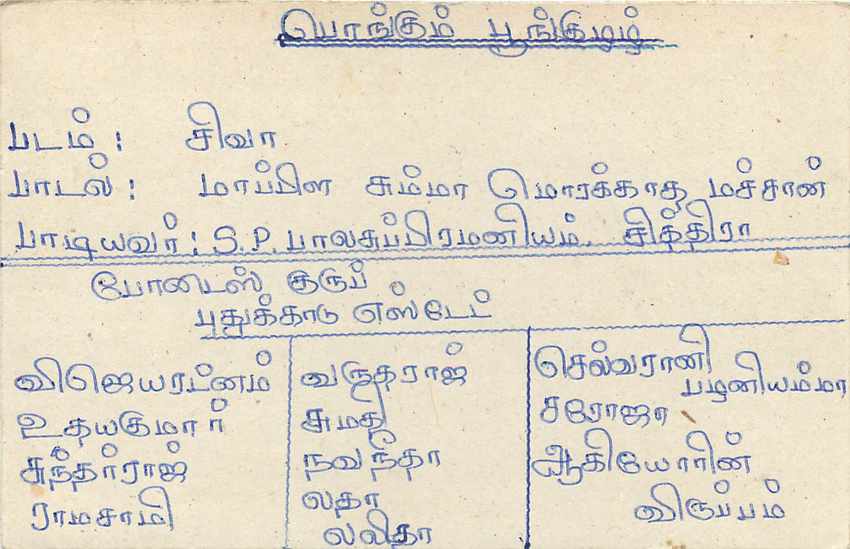 பொங்கும் பூங்குழழ்
படம் : சிவா
பாடல் : மாப்பிள சும்மா மொரக்காத மச்சான்
பாடியவர் : S.P. பாலசுப்பிரமனியம். சித்திரா
போடைஸ் குருப்
புதுக்காடு எஸ்டேட்
விஜெயரட்னம்
உதயகுமார்
சுந்தர்ராஜ்
ராமசாமி
வருதராஜ்
சுமதி
நவநீதா
லதா
லலிதா
செல்வரானி
பழனியம்மா
சரோஜா
ஆகியோரின்
விருப்பம்